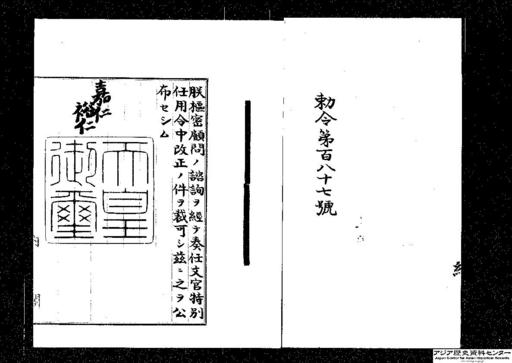 勅令第百八十七號
朕樞密顧問ノ諮詢ヲ經テ奏任文官特別
任用令中改正ノ件ヲ裁可シ茲ニ之ヲ公
布セシム
嘉仁
裕仁
天皇
御璽
アジア歴史資料センター
Japan Center for Asian Historical Records